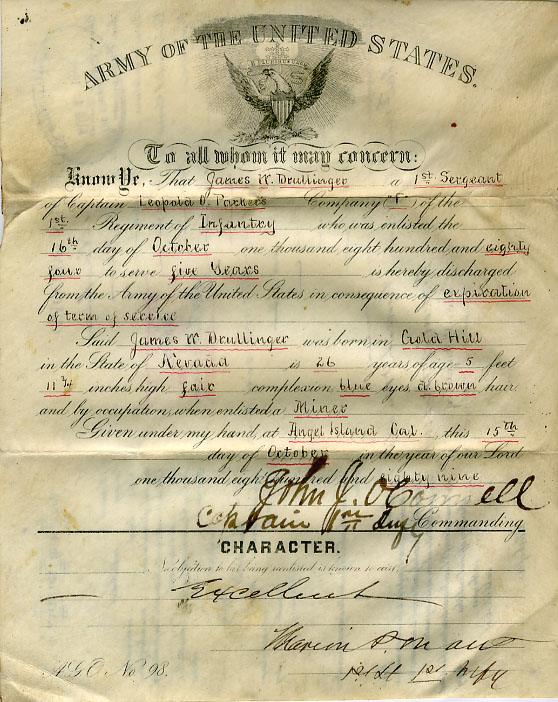 ARMY OF THE UNITED STATES.
To all whom it may concern:
Know Ye, That James W. Drullinger a 1st Sergeant
of Captain Leopold O. Parker's Company ("F") of the
1st Regiment of Infantry who was enlisted the
16th day of October one thousand eight hundred and eighty
four to serve five Years is hereby discharged
from the Army of the United States in consequence of expiration
of term of service
Said James W. Drullinger was born in Gold Hill
in the State of Nevada is 26 years of age 5 feet
11 3/4 inches high fair complexion blue eyes d. brown hair
and by occupation, when enlisted a Miner
Given under my hand, at Angel Island Cal. this 15th
day of October in the year of our Lord
one thousand eight hundred and eighty nine
John J. O'Connell
Captain 1st Inf'y Commanding
CHARACTER.
No objection to his being reenlisted is known to exist.
Excellent
Marion P. Maus
1st Lt 1st Inf'y
A.G.O. No. 98.